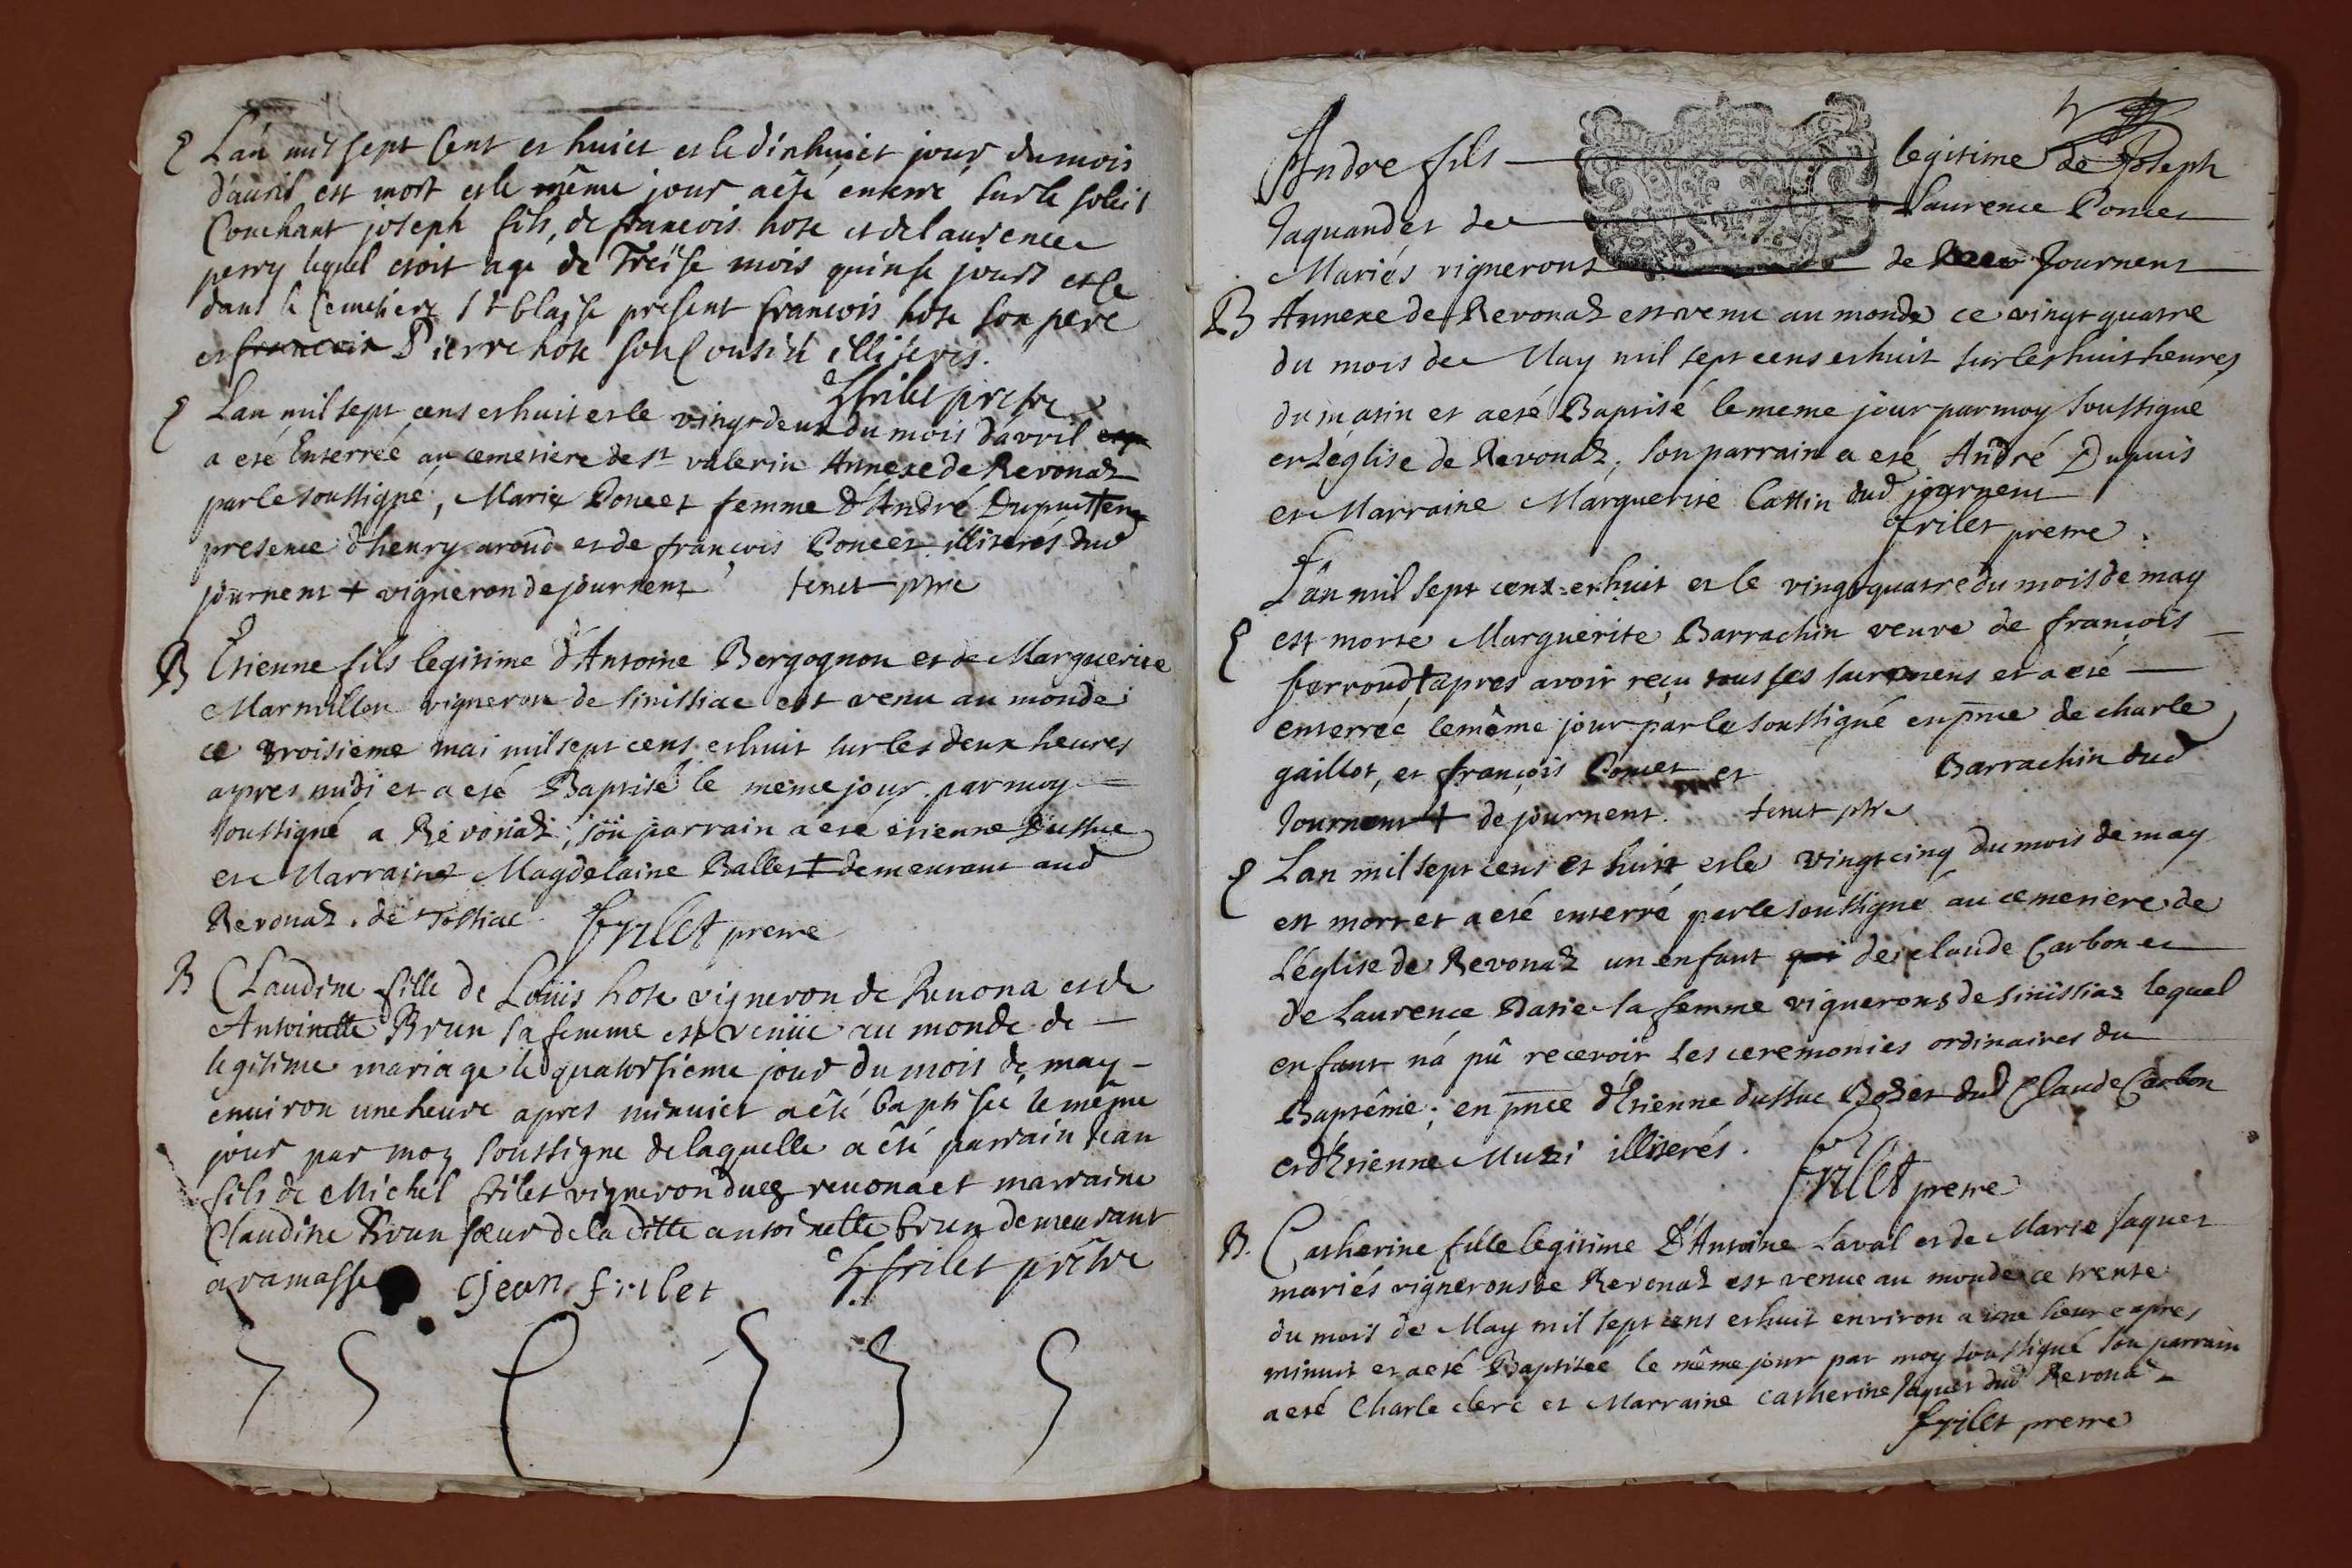 E L'an mil sept Cent et huict et le dixhuict jour du mois
d'auril est mort et le même jour a esté enterré sur le soleil
Couchant joseph fils, de francois hote et de laurence
perry lequel etoit age de Treise mois quinse jours et ce
dans le Cemetiere St blaise present francois hote son pere
et francois Pierre hote son Cousin illiteris.
frilet pretre
E Lan mil sept cens et huit et le vingt deux du mois d'avril
a eté Enterrée au cemetiere de st valerin Annexe de Revonaz
par le soussigné, Marie Poncet femme d'André Dupuit + en
presence d'henry aroud et de françois Poncet illiterés dud
journent + vigneron de journent tenet ptre
B Etienne fils legitime d'Antoine Borgognon et de Marguerite
Marmillon vigneron de Sinissiac est venu au monde
ce troisieme mai mil sept cens et huit sur les deux heures
apres midi et a eté Baptisé le meme jour par moy
soussigné a Revonaz; son parrain a eté etienne Dussuc
et Marraine Magdelaine Ballet + demeurant aud
Revonaz. de Tossiac frilet pretre
B Claudine fille de Loüis hote vigneron de Reuona et de
Antoinette Brun sa femme est venüe au monde de
legitime mariage le quatorsieme jour du mois de may
enuiron une heure apres minuict a êté baptisée le même
jour par moy soussigne de laquelle a êté parrain Jean
fils de Michel frilet vigneron dud reuona et marraine
Claudine Brun sœur de la ditte antoinette brun demeurant
a ramasse Jean frilet frilet prêtre
Andre fils legitime de Joseph
Jaquand et de Laurence Poncet
Mariés vignerons de Journent
B Annexe de Revonaz est venu au monde ce vingt quatre
du mois de May mil sept cens et huit sur les huit heures
du matin et a eté Baptisé le meme jour par moy soussigné
en L'église de Revonaz, son parrain a eté André Dupuis
et Marraine Marguerite Cattin dud journent
frilet pretre.
L'an mil sept cens et huit et le vingt quatre du mois de may
E est morte Marguerite Barrachin veuve de françois
ferroud + apres avoir reçu tous ses sacremens et a eté
enterrée le même jour par le soussigné en pnce de charle
gaillot, et françois Poncet et Barrachin dud
Journent + de journent. tenet ptre
E Lan mil sept cens et huit et le vingt cinq du mois de may
est mort et a eté enterré par le soussigné au cemetiere de
L'église de Revonaz un enfant qui de claude Carbon et
de Laurence Datie sa femme vignerons de sinissiaz lequel
enfant n'a pû recevoir les ceremonies ordinaires du
Baptême; en pnce d'Etienne dussuc Bozet dud Claude Carbon
et d'Etienne Muzi illiterés.
frilet pretre
B. Catherine fille legitime D'Antoine Laval et de Marie Jaquet
mariés vignerons de Revonaz est venue au monde ce trente
du mois de May mil sept cens et huit environ a une heure apres
minuit et a eté Baptisée le même jour par moy soussigné son parrain
a eté Charle clerc et Marraine catherine Jaquet dud Revona
frilet pretre